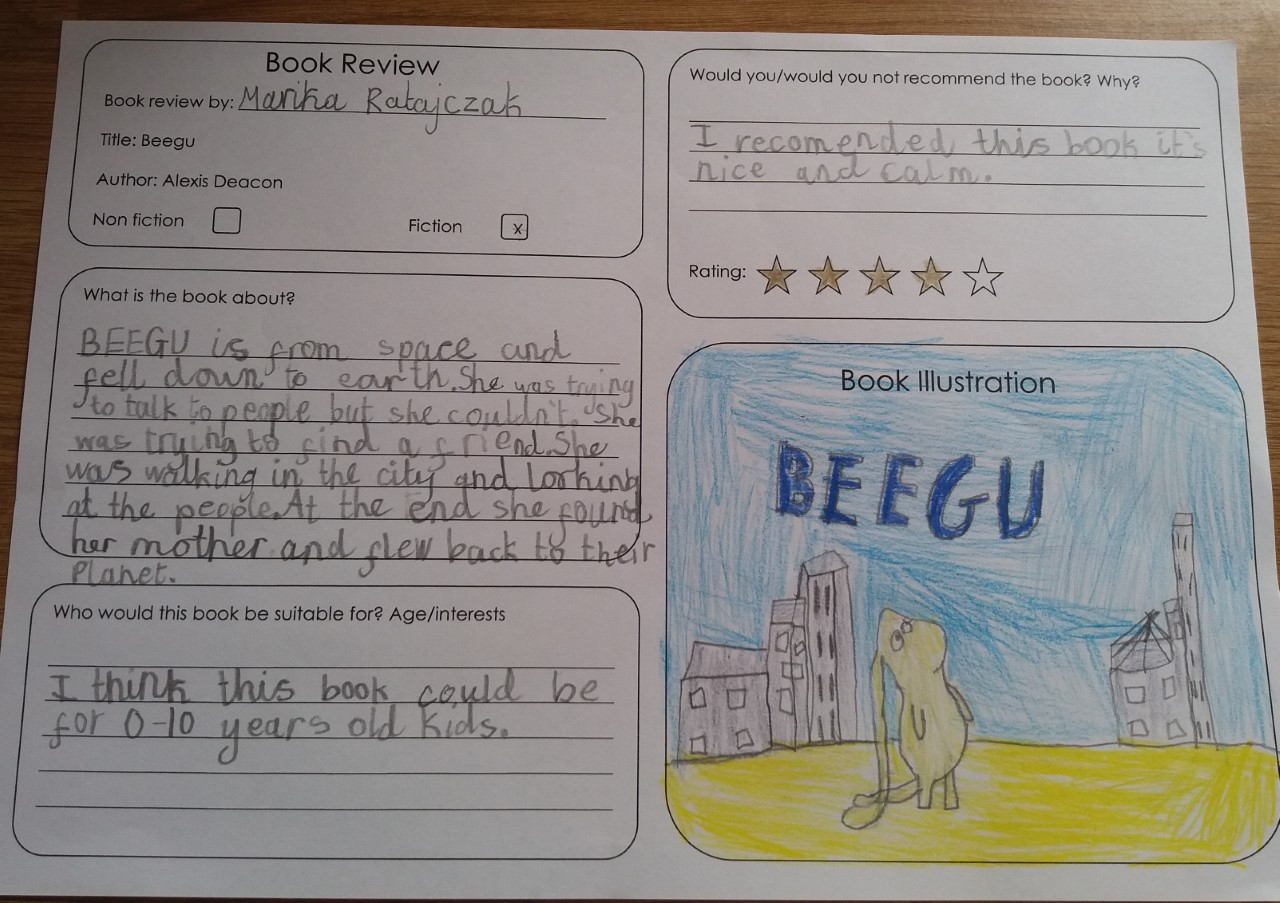 Book Review
Book review by: Marika Ratajczak
Title: Beegu
Author: Alexis Deacon
Non fiction
Fiction x
What is the book about?
BEEGU is from space and
fell down to earth. She was trying
to talk to people but she couldn't. She
was trying to find a friend. She
was walking in the city and looking
at the people. At the end she found
her mother and flew back to their
Planet.
Who would this book be suitable for? Age/interests
I think this book could be
for 0-10 years old kids.
Would you/would you not recommend the book? Why?
I recomended this book it's
nice and calm.
Rating:
Book Illustration
BEEGU